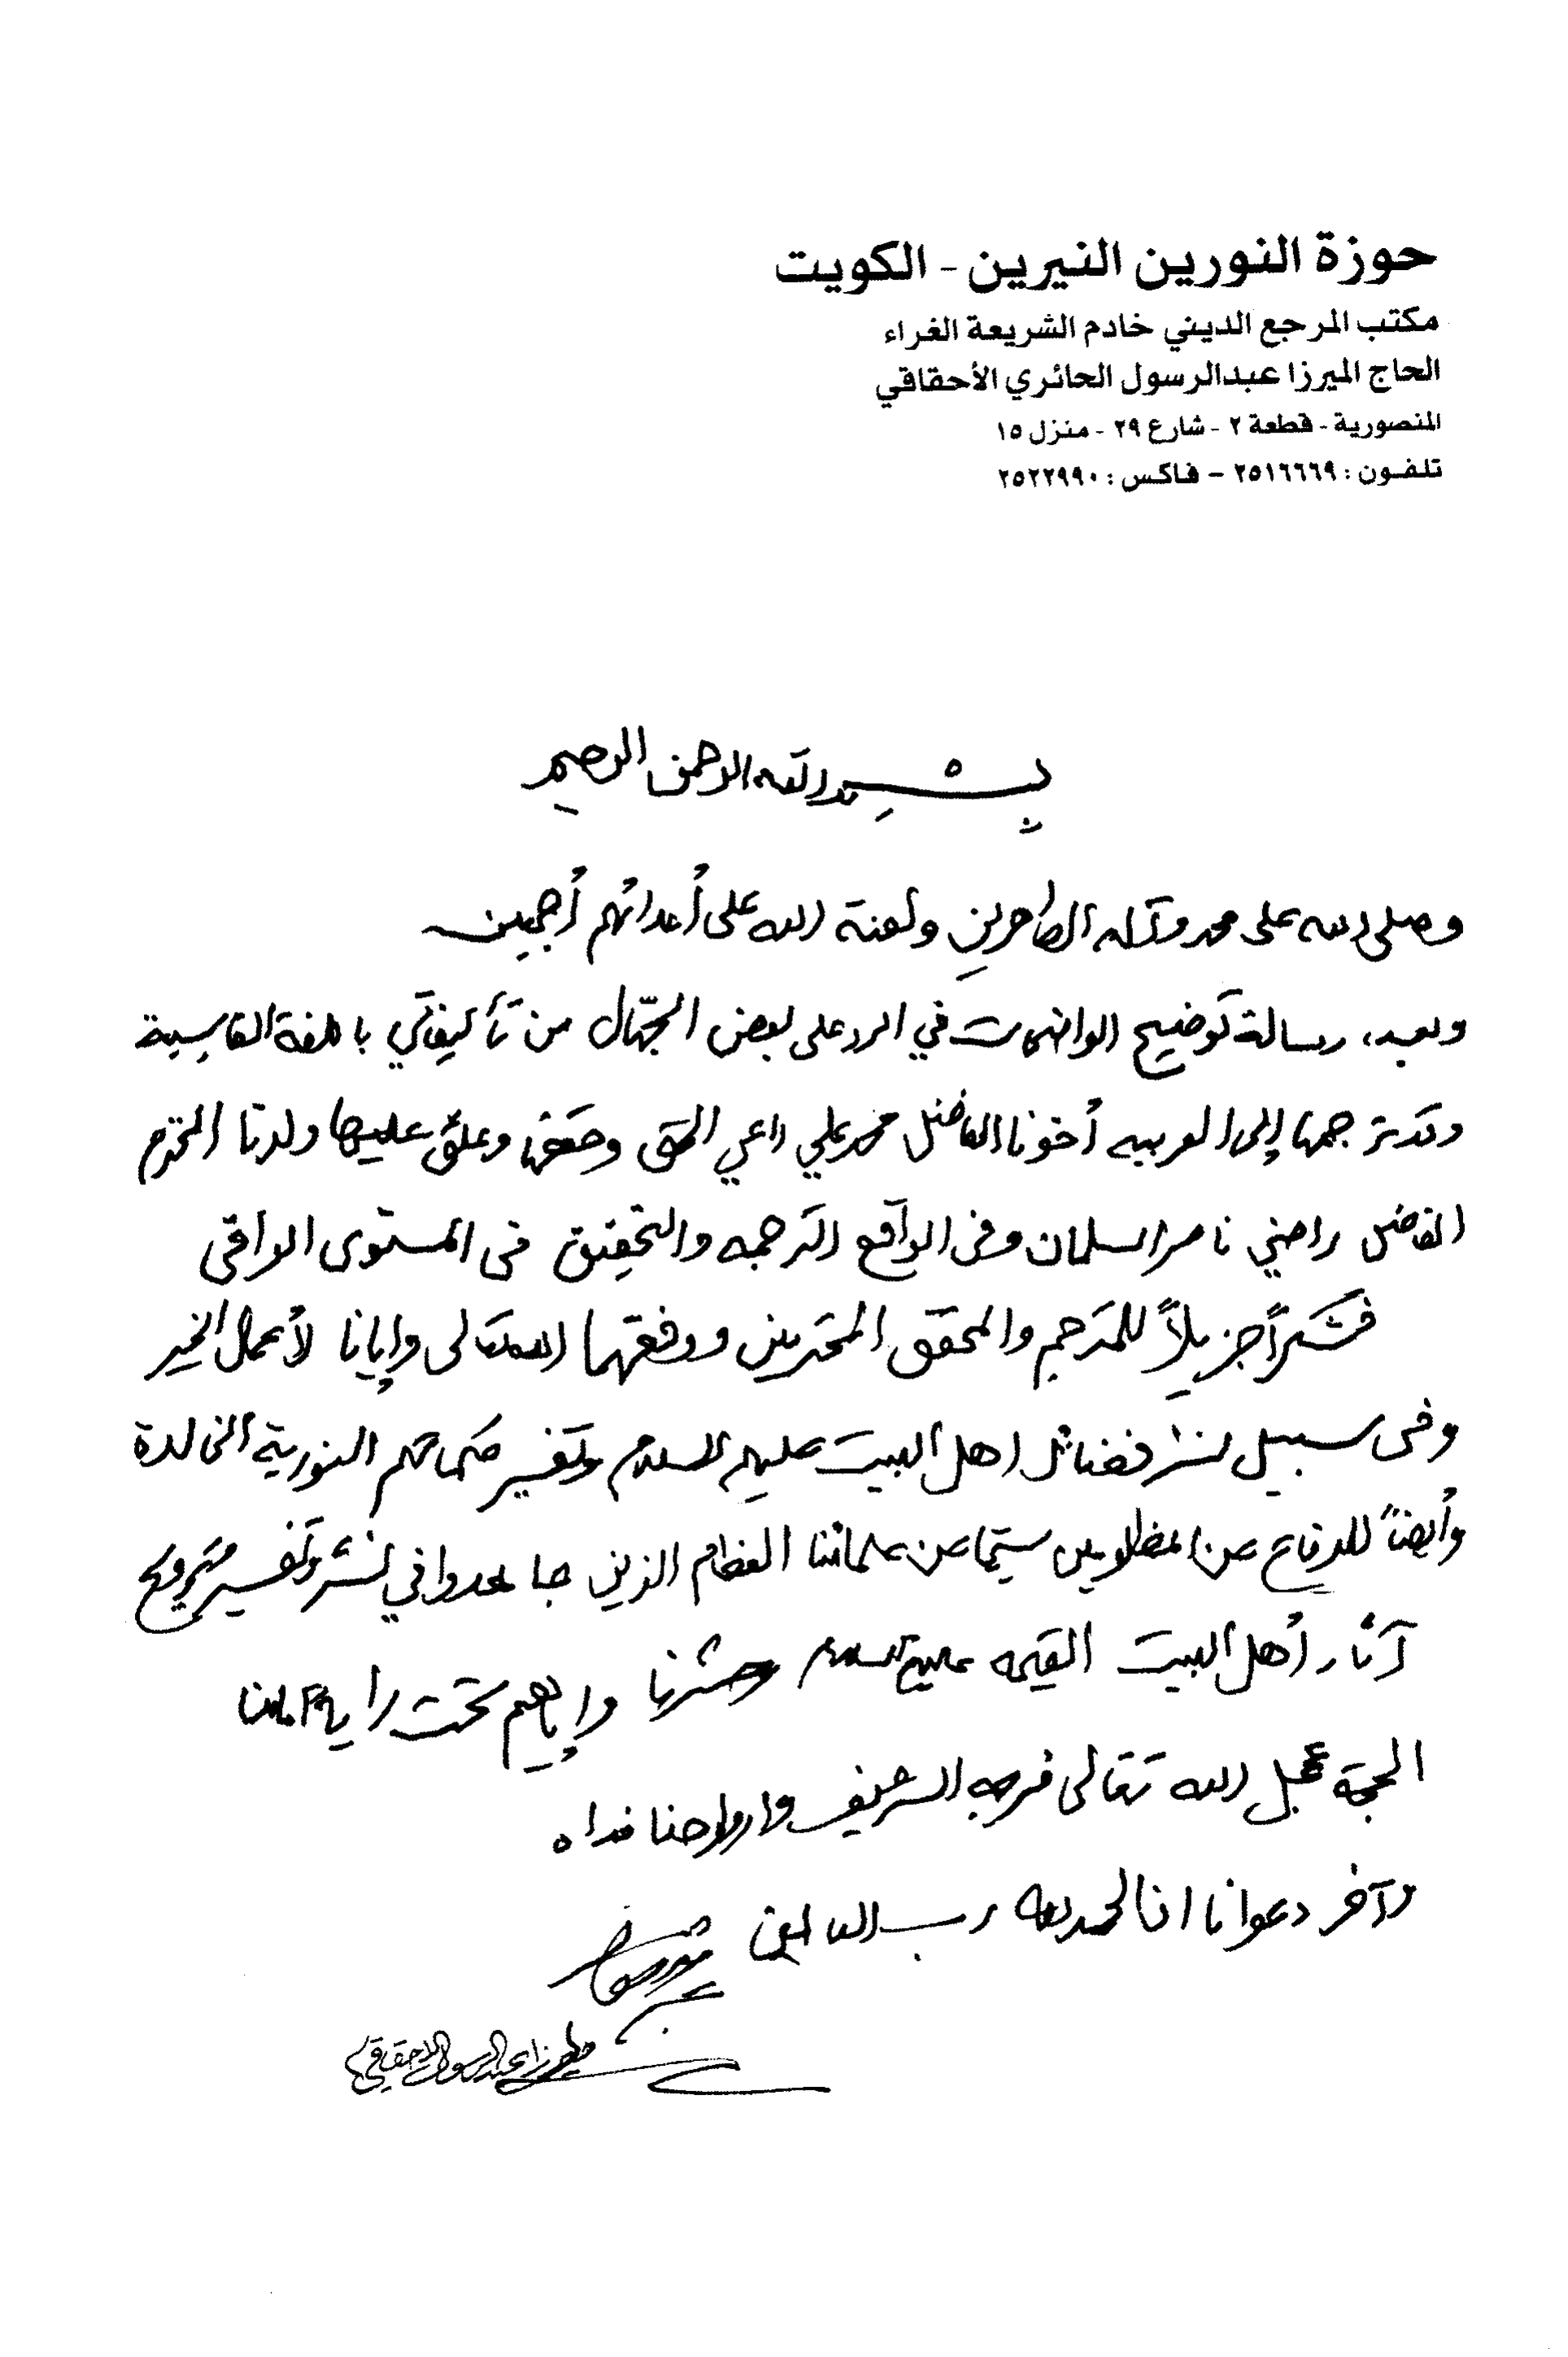 حوزة النورين النيرين - الكويت
مكتب المرجع الديني خادم الشريعة الغراء
الحاج الميرزا عبدالرسول الحائري الأحقاقي
المنصورية - قطعة ٢ - شارع ٢٩ - منزل ١٥
تلفون : ٢٥١٦٦٦٩ - فاكس : ٢٥٢٢٩٩٠
بسم الله الرحمن الرحيم
وصلى الله على محمد وآله الطاهرين ولعنة الله على أعدائهم أجمعين
وبعد، رسالة توضيح الواضحات في الرد على بعض الجهّال من تأليفاتي باللغة الفارسية
وقد ترجمها إلى العربيه أخونا الفاضل محمد علي داعي الحق وحققها وعلّق عليها ولدنا المحترم
الفاضل راضي ناصر السلمان وفى الواقع الترجمه والتحقيق فى المستوى الراقى
فشكراً جزيلاً للمترجم والمحقق المحترمين ووفقهما الله تعالى وإيانا لأعمال الخير
وفى سبيل نشر فضائل اهل البيت عليهم السلام وتفسير كلماتهم النورية الخالدة
وأيضاً للدفاع عن المظلومين سيّما عن علمائنا العظام الذين جاهدوا في نشر وتفسير وترويج
آثار أهل البيت القيمه عليهم السلام وحشرنا وإياهم تحت راية امامنا
الحجة عجل الله تعالى فرجه الشريف وارواحنا فداه
وآخر دعوانا ان الحمد لله رب العالمين
ميرزا عبدالرسول الاحقاقي